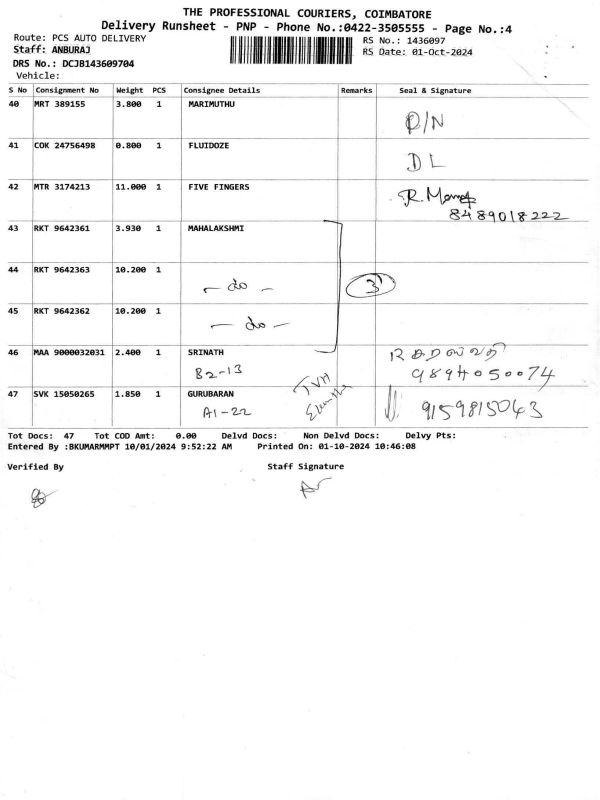 THE PROFESSIONAL COURIERS, COIMBATORE
Delivery Runsheet - PNP - Phone No.:0422-3505555 - Page No.:4
Route: PCS AUTO DELIVERY
RS No.: 1436097
Staff: ANBURAJ
RS Date: 01-Oct-2024
DRS No.: DCJB143609704
Vehicle:
S No Consignment No Weight PCS Consignee Details Remarks Seal & Signature
40 MRT 389155 3.800 1 MARIMUTHU
D/N
41 COK 24756498 0.800 1 FLUIDOZE
DL
42 MTR 3174213 11.000 1 FIVE FINGERS
8489018222
43 RKT 9642361 3.930 1 MAHALAKSHMI
44 RKT 9642363 10.200 1
- do - 3
45 RKT 9642362 10.200 1
- do -
46 MAA 9000032031 2.400 1 SRINATH
B2-13 9894050074
47 SVK 15050265 1.850 1 GURUBARAN
TVH
A1-22 9159815043
Tot Docs: 47 Tot COD Amt: 0.00 Delvd Docs: Non Delvd Docs: Delvy Pts:
Entered By :BKUMARMMPT 10/01/2024 9:52:22 AM Printed On: 01-10-2024 10:46:08
Verified By Staff Signature